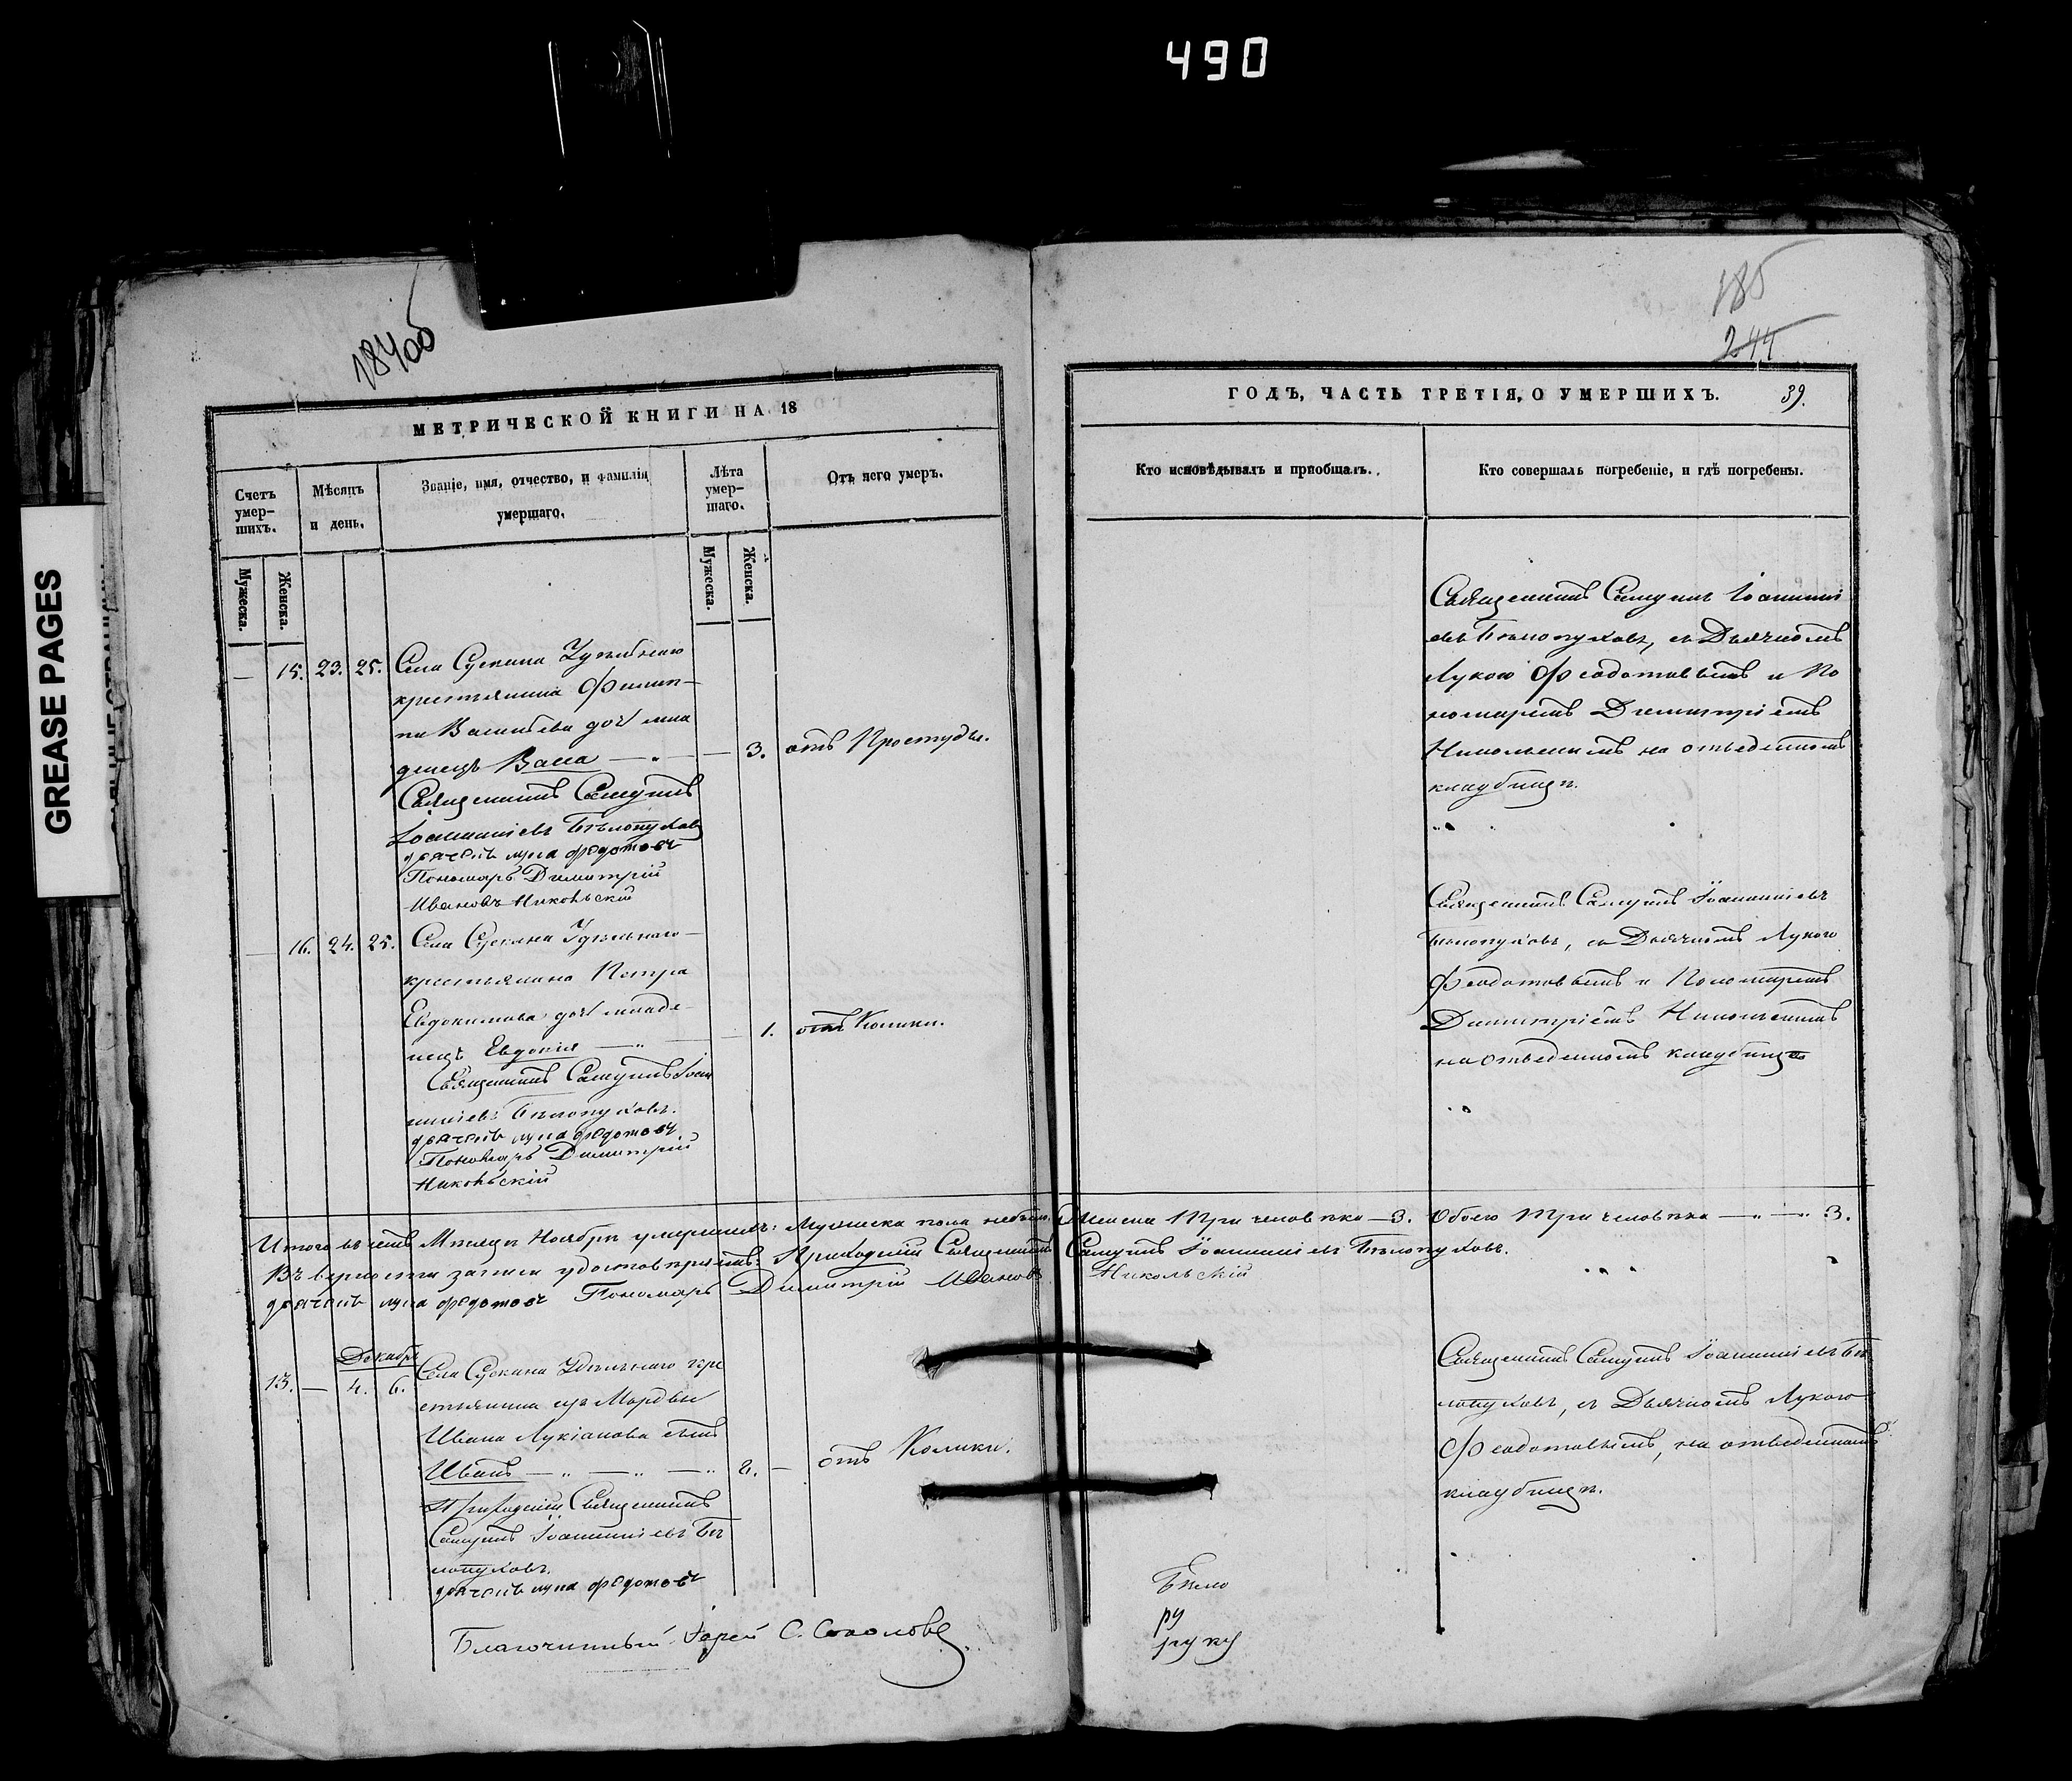 490
184об
185
244
МЕТРИЧЕСКОЙ КНИГИ НА 18
ГОДЪ, ЧАСТЬ ТРЕТІЯ, О УМЕРШИХЪ. 39.
Счетъ умер-шихъ.
Мужеска.
Женска.
Мѣсяцъ и день.
Званіе, имя, отчество, и фамилія умершаго.
Лѣта умер-шаго.
Мужеска.
Женска.
Отъ чего умеръ.
Кто исповѣдывалъ и пріобщалъ.
Кто совершалъ погребеніе, и гдѣ погребены.
— 15. 23. 25. Села Сускана Удѣльнаго
крестьянина Филип-
па Васильева дочь мла
денецъ Васса — „ — — 3. отъ Простуды.
Священникъ Самуилъ
Іоанніевъ Бѣлопуховъ
дьячекъ лука федотовъ
Пономарь Димитрій
Ивановъ Никольскій
Священникъ Самуилъ Іоанні
евъ Бѣлопуховъ, съ Дьячкомъ
Лукою Феодотовымъ и По
номаремъ Димитріемъ
Никольскимъ на отведенномъ
кладбищѣ.
— 16. 24. 25. Села Сускана Удѣльнаго
крестьянина Петра
Евдокимова дочь младе-
нецъ Евдокія — „ — — 1. отъ Колики.
Священникъ Самуилъ Іоан
ніевъ Бѣлопуховъ.
дьячекъ лука федотовъ
Пономарь Димитрій
Никольскій
Священникъ Самуилъ Іоанніевъ
Бѣлопуховъ, съ Дьячкомъ Лукою
Феодотовымъ и Пономаремъ
Димитріемъ Никольскимъ
на отведенномъ кладбищѣ
Итого въ семъ Мѣсяцѣ Ноябрѣ умершихъ: Мужеска пола небыло, Женска Три человѣка — 3. Обоего Три человѣка — „ — „ 3.
Въ верности записи удостовѣряемъ: Приходскій Священникъ Самуилъ Іоанніевъ Бѣлопуховъ.
дьячекъ лука федотовъ Пономарь Димитрій Ивановъ Никольскій
Декабрь
13. — 4. 6. Села Сускана Удѣльнаго кре
стьянина изъ Мордвы
Ивана Лукіанова сынъ
Иванъ — „ — „ — „ 2. — отъ Колики.
Приходскій Священникъ
Самуилъ Іоанніевъ Бѣ
лопуховъ.
дьячекъ лука федотовъ
Священникъ Самуилъ Іоанніевъ Бѣ
лопуховъ, съ Дьячкомъ Лукою
Феодотовымъ, на отведенномъ
кладбищѣ.
Благочинный Іерей С. Соколовъ
ру
руку
GREASE PAGES